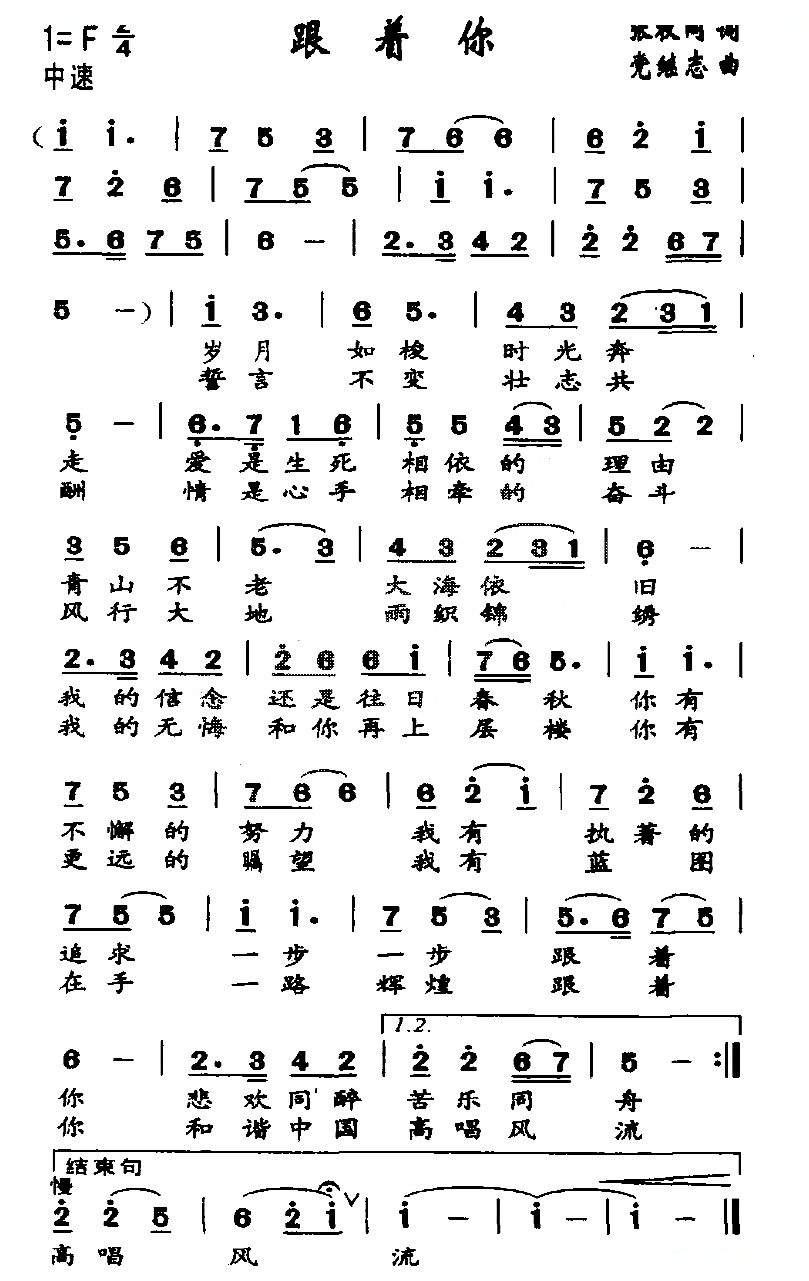 1=F 2/4
跟着你
中速
党继志 曲
( i i. | 7 5 3 | 7 6 6 | 6 2 i |
7 2 6 | 7 5 5 | i i. | 7 5 3 |
5. 6 7 5 | 6 － | 2. 3 4 2 | 2 2 6 7 |
5 －) | i 3. | 6 5. | 4 3 2 3 1 |
岁月 如梭 时光奔
誓言 不变 壮志共
5 － | 6. 7 1 6 | 5 5 4 3 | 5 2 2 |
走 爱是生死 相依的 理由
酬 情是心手 相牵的 奋斗
3 5 6 | 5. 3 | 4 3 2 3 1 | 6 － |
青山不老 大海依 旧
风行大地 雨织锦 绣
2. 3 4 2 | 2 6 6 i | 7 6 5. | i i. |
我的信念 还是往日 春秋 你有
我的无悔 和你再上 层楼 你有
7 5 3 | 7 6 6 | 6 2 i | 7 2 6 |
不懈的 努力 我有 执著的
更远的 瞩望 我有 蓝图
7 5 5 | i i. | 7 5 3 | 5. 6 7 5 |
追求 一步 一步 跟着
在手 一路 辉煌 跟着
1.2.
6 － | 2. 3 4 2 | 2 2 6 7 | 5 － :||
你 悲欢同醉 苦乐同 舟
你 和谐中国 高唱风 流
结束句
慢
2 2 5 | 6 2 i ∨ | i － | i － | i － ||
高唱 风 流